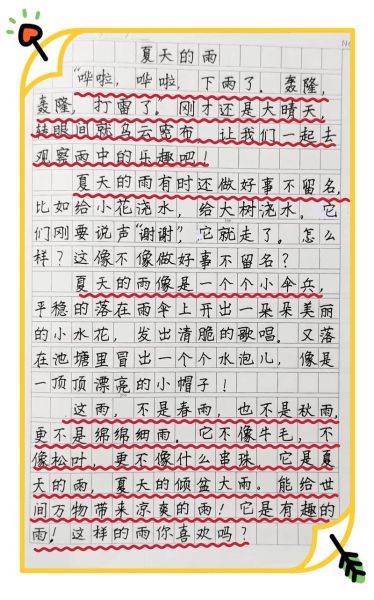 夏天的雨
“哗啦,哗啦,下雨了。轰隆,
轰隆,打雷了。刚才还是大晴天,
转眼间就乌云密布,让我们一起去
观察雨中的乐趣吧!
夏天的雨有时还做好事不留名,
比如给小花浇水,给大树浇水。它
们刚要说声“谢谢”,它就走了。怎么
样?这像不像做好事不留名?
夏天的雨像是一个个小伞兵,
平稳的落在雨伞上开出一朵朵美丽
的小水花,发出清脆的歌唱。又落
在池塘里冒出一个个水泡儿,像是
一顶顶漂亮的小帽子!
这雨,不是春雨,也不是秋雨,
更不是绵绵细雨。它不像牛毛,不
像松叶,更不像什么串珠,它是夏
天的雨,夏天的倾盆大雨。能给世
间万物带来凉爽的雨!它是有趣的
雨!这样的雨你喜欢吗?